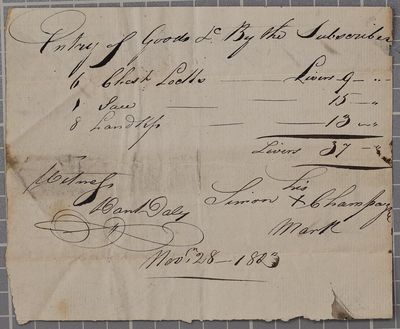 Entry of Goods &c By the Subscriber
6 Chest Locks — Livers 9 - "
1 Saw — 15 - "
8 — 13 - "
Livers 37 - "
Witness His
Hank Daly Simon X Champag
Mark
Novr. 28 - 1803